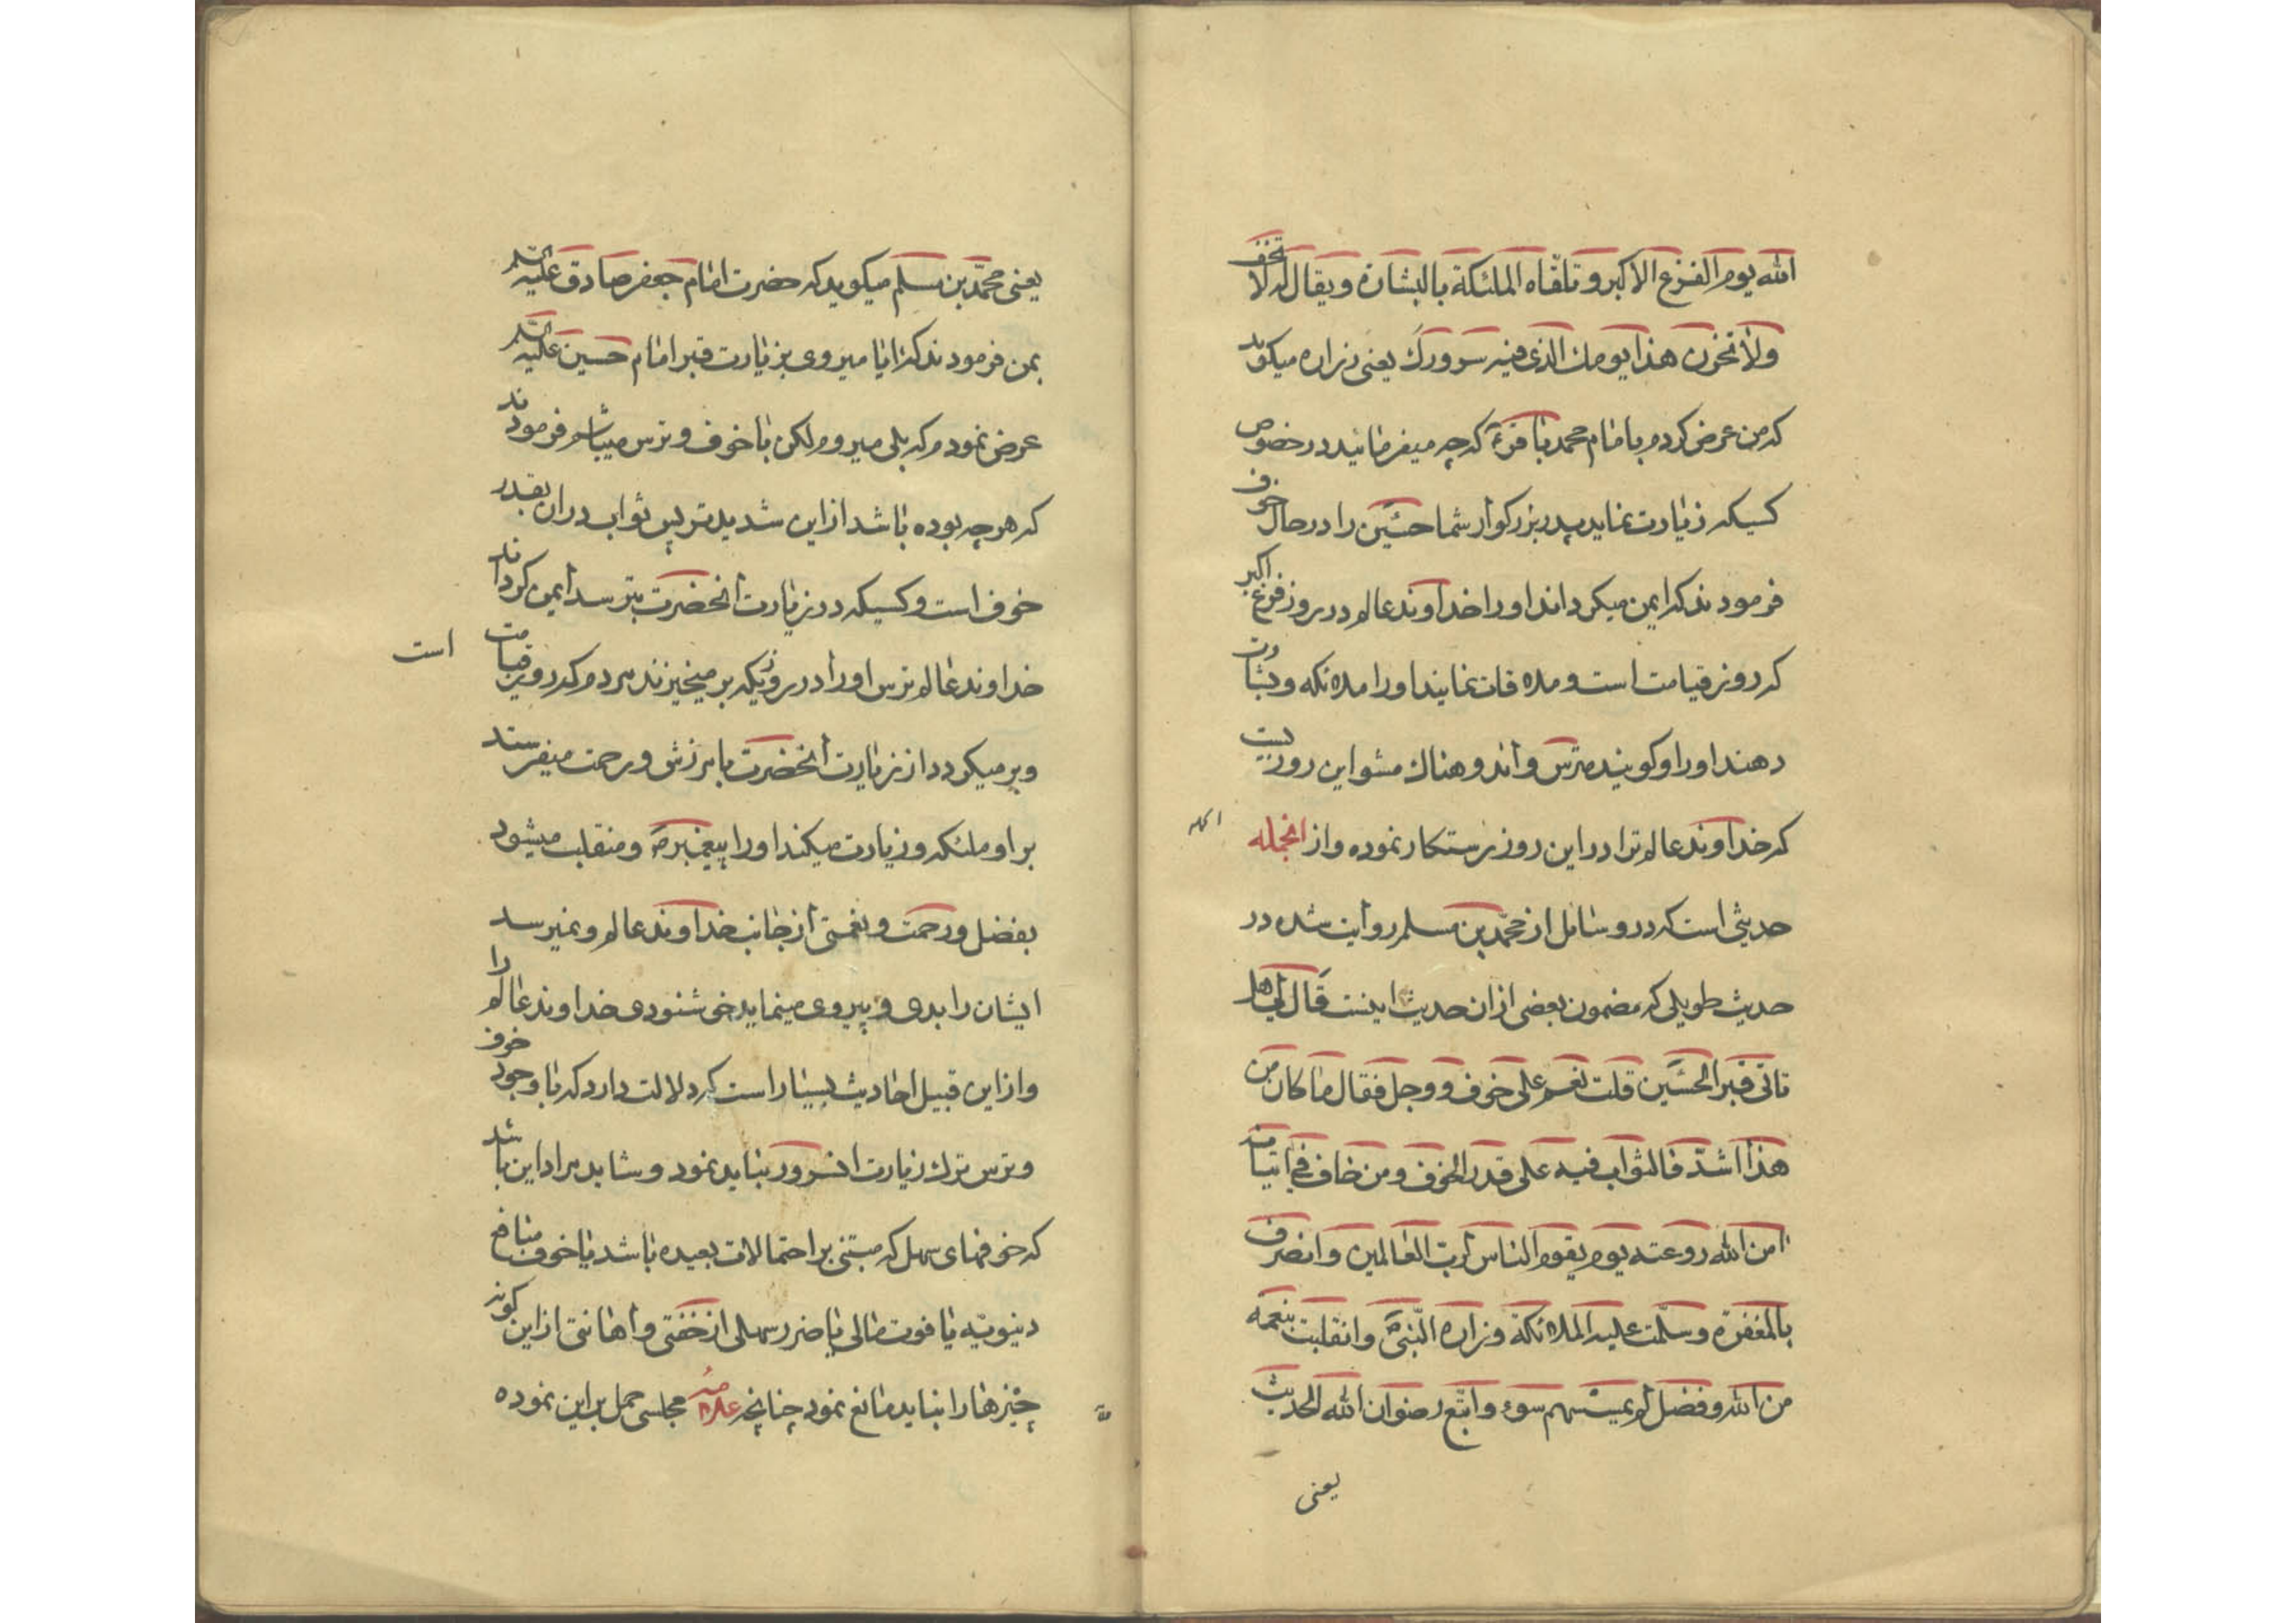 الله يوم الفزع الاكبر وتلقاه الملئكة بالبشارة ويقال له لا تخف
ولا تحزن هذا يومك الذى فيه سرورك يعنى زراره ميكويد
كه من عرض كردم بامام محمد باقر كه چه ميفرمائيد در خصوص
كسيكه زيارت نمايد پدر بزركوار شما حسين را در حال خوف
فرمودند كه ايمن ميكرداند او را خداوند عالم در روز فزع اكبر
كه روز قيامت است و ملاقات نمايند او را ملائكه و بشارت
دهند او را و كويند مترس و اندوهناك مشو اين روزيست
كه خداوند عالم ترا در اين روز رستكار نموده و از انجمله
حديثى است كه در وسائل از محمد بن مسلم روايت شده در
حديث طويلى كه مضمون بعضى از ان حديث اينست قال لى هل
تاتى قبر الحسين قلت نعم على خوف و وجل فقال ما كان من
هذا اشد فالثواب فيه على قدر الخوف ومن خاف فى اتيانه
امن الله روعته يوم يقوم الناس لرب العالمين وانصرف
بالمغفرة وسلمت عليه الملائكة وزاره النبى وانقلبت بنعمة
من الله وفضل لم يمسسهم سوء واتبع رضوان الله الحديث
يعنى
يعنى محمد بن مسلم ميكويد كه حضرت امام جعفر صادق عليه السلم
بمن فرمودند كه ايا ميروى بزيارت قبر امام حسين عليه السلم
عرض نمودم كه بلى ميروم لكن با خوف و ترس ميباشم فرمودند
كه هر چه بوده باشد از اين شديدتر پس ثواب در ان بقدر
خوف است و كسيكه در زيارت انحضرت بترسد ايمن كرداند
خداوند عالم ترس او را در روزيكه بر ميخيزند مردم كه روز قيامت
است
و بر ميكردد از زيارت انحضرت بامرزش و رحمت ميفرستد
بر او ملئكه و زيارت ميكند او را پيغمبر ص و منقلب ميشود
بفضل و رحمت و نعمتى از جانب خداوند عالم و نميرسد
ايشان را بدى و پيروى مينمايد خوشنودى خداوند عالم را
و از اين قبيل احاديث بسيار است كه دلالت دارد كه با وجود خوف
و ترس ترك زيارت انسرور نبايد نمود و شايد مراد اين باشد
كه خوفهاى سهل كه مبتنى بر احتمالات بعيده باشد يا خوف منافع
دنيويه يا فوت مالى يا ضرر سهلى از خفتى و اهانتى از اين كونه
چيزها را نبايد مانع نمود چنانچه علامه مجلسى حمل بر اين نموده